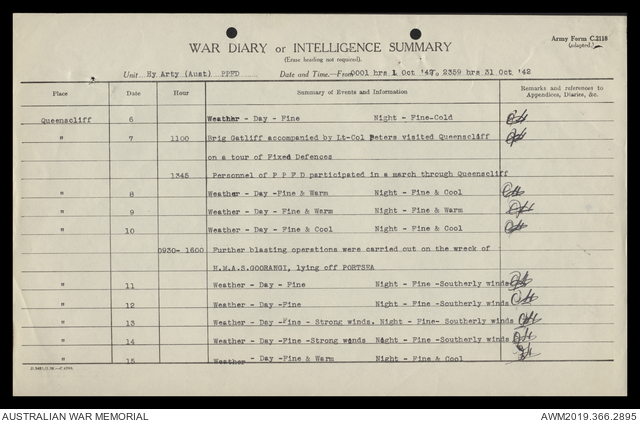 Army Form C.2118
(adapted.)
WAR DIARY or INTELLIGENCE SUMMARY
(Erase heading not required).
Unit Hy Arty (Aust) PPFD Date and Time.—From 0001 hrs 1 Oct '42 To 2359 hrs 31 Oct '42
Place Date Hour Summary of Events and Information Remarks and references to Appendices, Diaries, &c.
Queenscliff 6 Weather - Day - Fine Night - Fine-Cold
" 7 1100 Brig Gatliff accompanied by Lt-Col Peters visited Queenscliff
on a tour of Fixed Defences
1345 Personnel of P P F D participated in a march through Queenscliff
" 8 Weather - Day -Fine & Warm Night - Fine & Cool
" 9 Weather - Day -Fine & Warm Night - Fine & Warm
" 10 Weather - Day -Fine & Cool Night - Fine & Cool
0930- 1600 Further blasting operations were carried out on the wreck of
H.M.A.S.GOORANGI, lying off PORTSEA
" 11 Weather - Day - Fine Night - Fine -Southerly winds
" 12 Weather - Day -Fine Night - Fine -Southerly winds
" 13 Weather - Day -Fine - Strong winds. Night - Fine- Southerly winds
" 14 Weather - Day -Fine -Strong winds Night - Fine -Southerly winds
" 15 Weather - Day -Fine & Warm Night - Fine & Cool
AUSTRALIAN WAR MEMORIAL AWM2019.366.2895